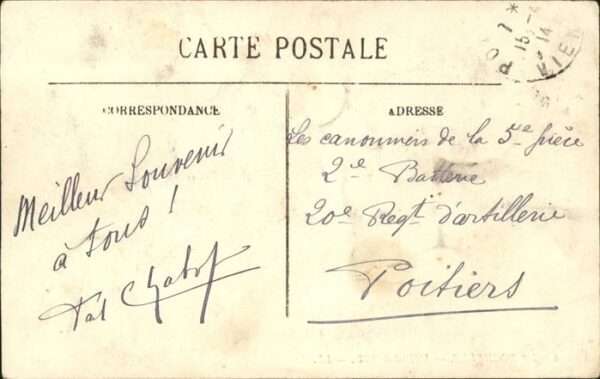 CARTE POSTALE
CORRESPONDANCE
ADRESSE
Meilleur Souvenir
à tous !
Chabot
Les canonniers de la 5e pièce
2e Batterie
20e Regt d'artillerie
Poitiers
15
14